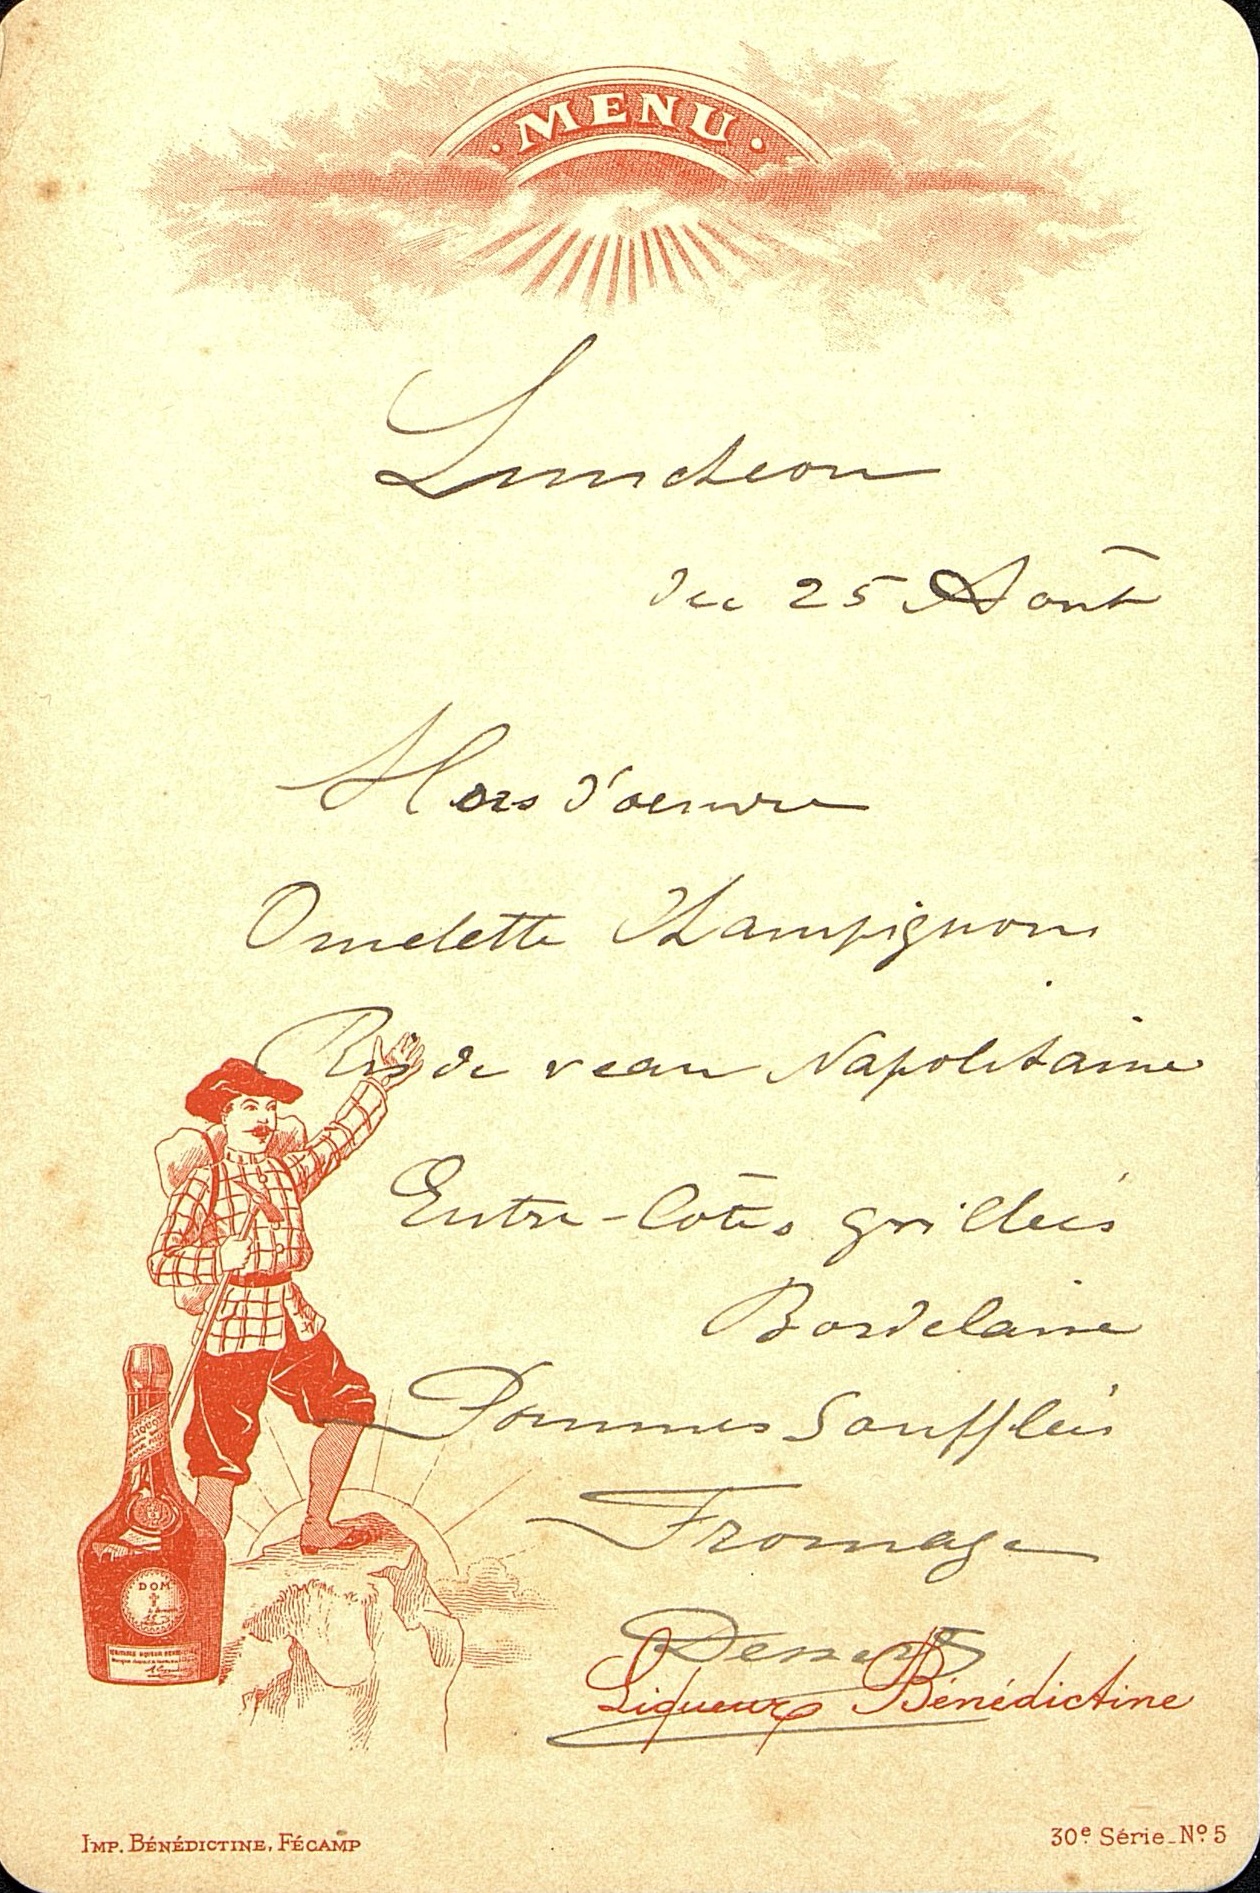 · MENU ·
Luncheon
du 25 Août
Hors d'oeuvre
Omelette Champignons
Ris de veau Napolitaine
Entre-Côtes grillées
Bordelaise
Pommes Soufflées
Fromage
Dessert
Liqueur Bénédictine
DOM
IMP. BÉNÉDICTINE, FÉCAMP
30e Série_No 5